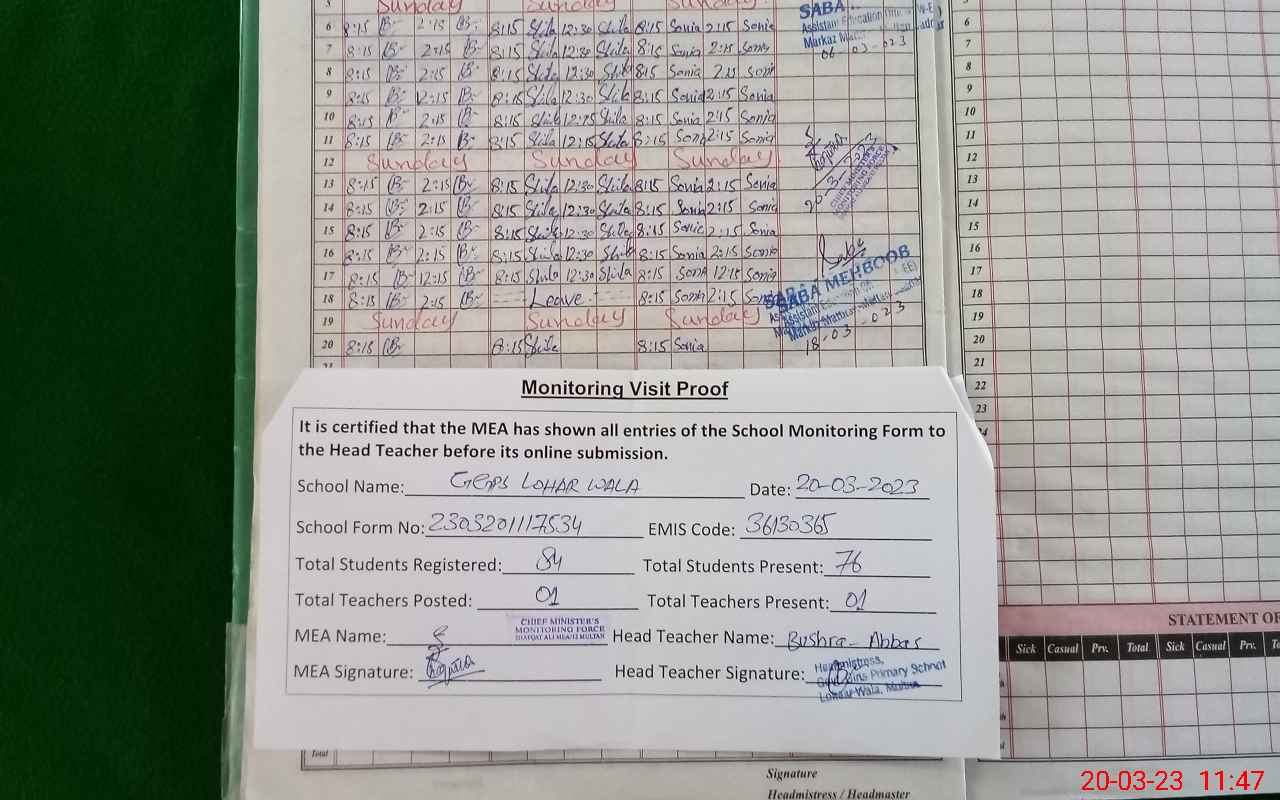 5 Sunday Sunday Sunday
6 8:15 B 2:15 B 8:15 Shila 12:30 Shila 8:15 Sonia 2:15 Sonia 6
7 8:15 B 2:15 B 8:15 Shila 12:30 Shila 8:15 Sonia 2:15 Sonia 7
8 8:15 B 2:15 B 8:15 Shila 12:30 Shila 8:15 Sonia 2:15 Sonia 8
9 8:15 B 12:15 B 8:15 Shila 12:30 Shila 8:15 Sonia 2:15 Sonia 9
10 8:15 B 2:15 B 8:15 Shila 12:15 Shila 8:15 Sonia 2:15 Sonia 10
11 8:15 B 2:15 B 8:15 Shila 12:15 Shila 8:15 Sonia 2:15 Sonia 11
12 Sunday Sunday Sunday 12
13 8:15 B 2:15 B 8:15 Shila 12:30 Shila 8:15 Sonia 2:15 Sonia 13
14 8:15 B 2:15 B 8:15 Shila 12:30 Shila 8:15 Sonia 2:15 Sonia 14
15 8:15 B 2:15 B 8:15 Shila 12:30 Shila 8:15 Sonia 2:15 Sonia 15
16 8:15 B 2:15 B 8:15 Shila 12:30 Shila 8:15 Sonia 2:15 Sonia 16
17 8:15 B 12:15 B 8:15 Shila 12:30 Shila 8:15 Sonia 12:15 Sonia 17
18 8:15 B 2:15 B Leave 8:15 Sonia 2:15 Sonia 18
19 Sunday Sunday Sunday 19
20 8:15 B 8:15 Shila 8:15 Sonia 20
21
22
23
SABA
Assistant Education
Markaz
06-03-023
20-3-2023
CHIEF MINISTER'S
MONITORING FORCE
SABA MEHBOOB
18-03-023
Monitoring Visit Proof
It is certified that the MEA has shown all entries of the School Monitoring Form to
the Head Teacher before its online submission.
School Name: GGPS LOHAR WALA Date: 20-03-2023
School Form No: 2303201117534 EMIS Code: 36130365
Total Students Registered: 84 Total Students Present: 76
Total Teachers Posted: 01 Total Teachers Present: 01
CHIEF MINISTER'S
MONITORING FORCE
SHAFQAT ALI MEA(12) MULTAN
MEA Name: Head Teacher Name: Bushra-Abbas
MEA Signature: Head Teacher Signature:
Headmistress,
Govt Girls Primary School
Lohar Wala, Multan
STATEMENT OF
Sick Casual Prv. Total Sick Casual Prv.
Total
Signature
Headmistress / Headmaster
20-03-23 11:47